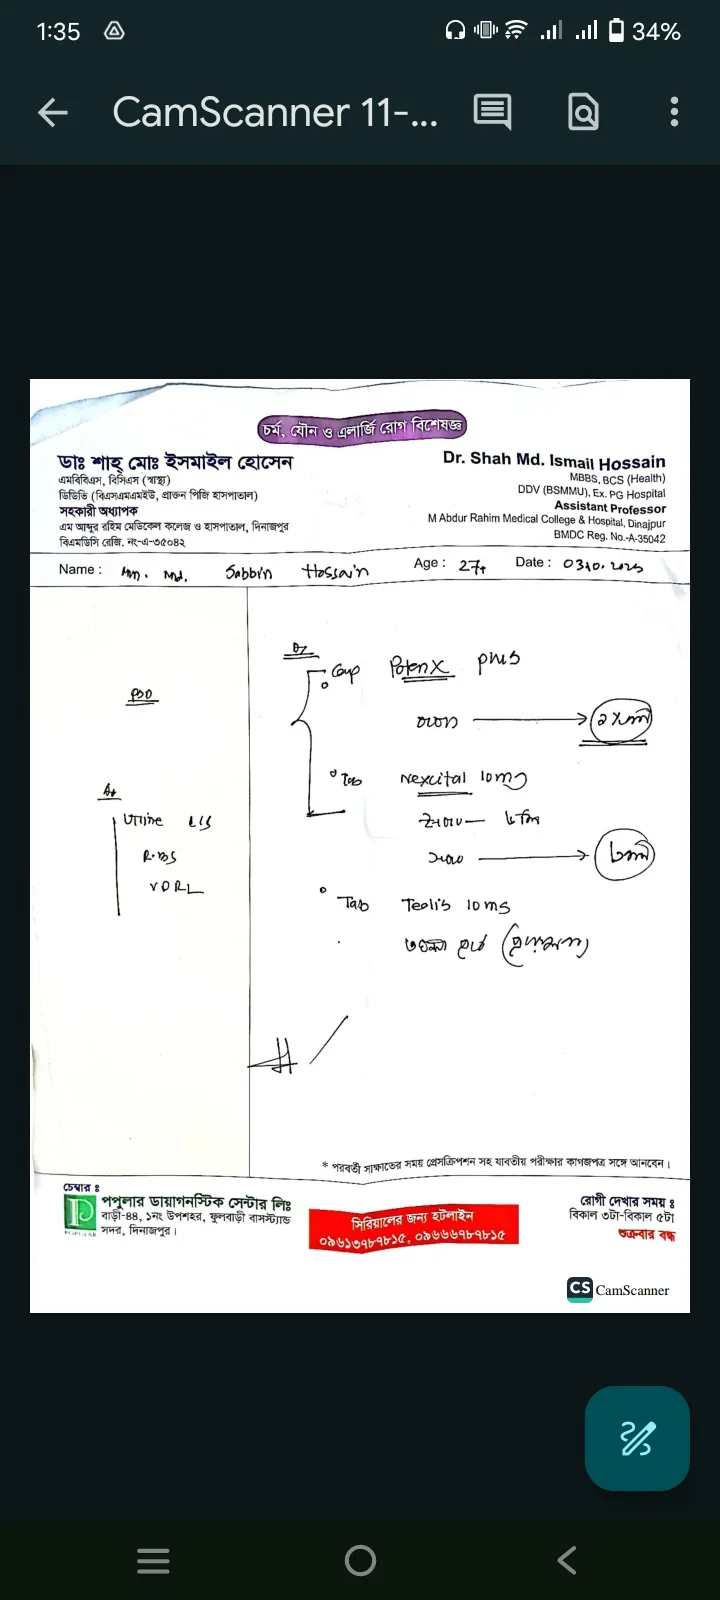 1:35
34%
CamScanner 11-...
চর্ম, যৌন ও এলার্জি রোগ বিশেষজ্ঞ
ডাঃ শাহ্ মোঃ ইসমাইল হোসেন
এমবিবিএস, বিসিএস (স্বাস্থ্য)
ডিডিভি (বিএসএমএমইউ, প্রাক্তন পিজি হাসপাতাল)
সহকারী অধ্যাপক
এম আব্দুর রহিম মেডিকেল কলেজ ও হাসপাতাল, দিনাজপুর
বিএমডিসি রেজি. নং-এ-৩৫০৪২
Dr. Shah Md. Ismail Hossain
MBBS, BCS (Health)
DDV (BSMMU), Ex. PG Hospital
Assistant Professor
M Abdur Rahim Medical College & Hospital, Dinajpur
BMDC Reg. No.-A-35042
Name : Md. Sabbin Hossain Age : 27+ Date :
Urine
RBS
VDRL
Cap Potenx plus
Tab Nexcital 10mg
Tab 10mg
* পরবর্তী সাক্ষাতের সময় প্রেসক্রিপশন সহ যাবতীয় পরীক্ষার কাগজপত্র সঙ্গে আনবেন।
চেম্বার ঃ
পপুলার ডায়াগনস্টিক সেন্টার লিঃ
বাড়ী-৪৪, ১নং উপশহর, ফুলবাড়ী বাসস্ট্যান্ড
সদর, দিনাজপুর।
POPULAR
সিরিয়ালের জন্য হটলাইন
০৯৬১৩৭৮৭৮১৫, ০৯৬৬৬৭৮৭৮১৫
রোগী দেখার সময় ঃ
বিকাল ৩টা-বিকাল ৫টা
শুক্রবার বন্ধ
CS CamScanner